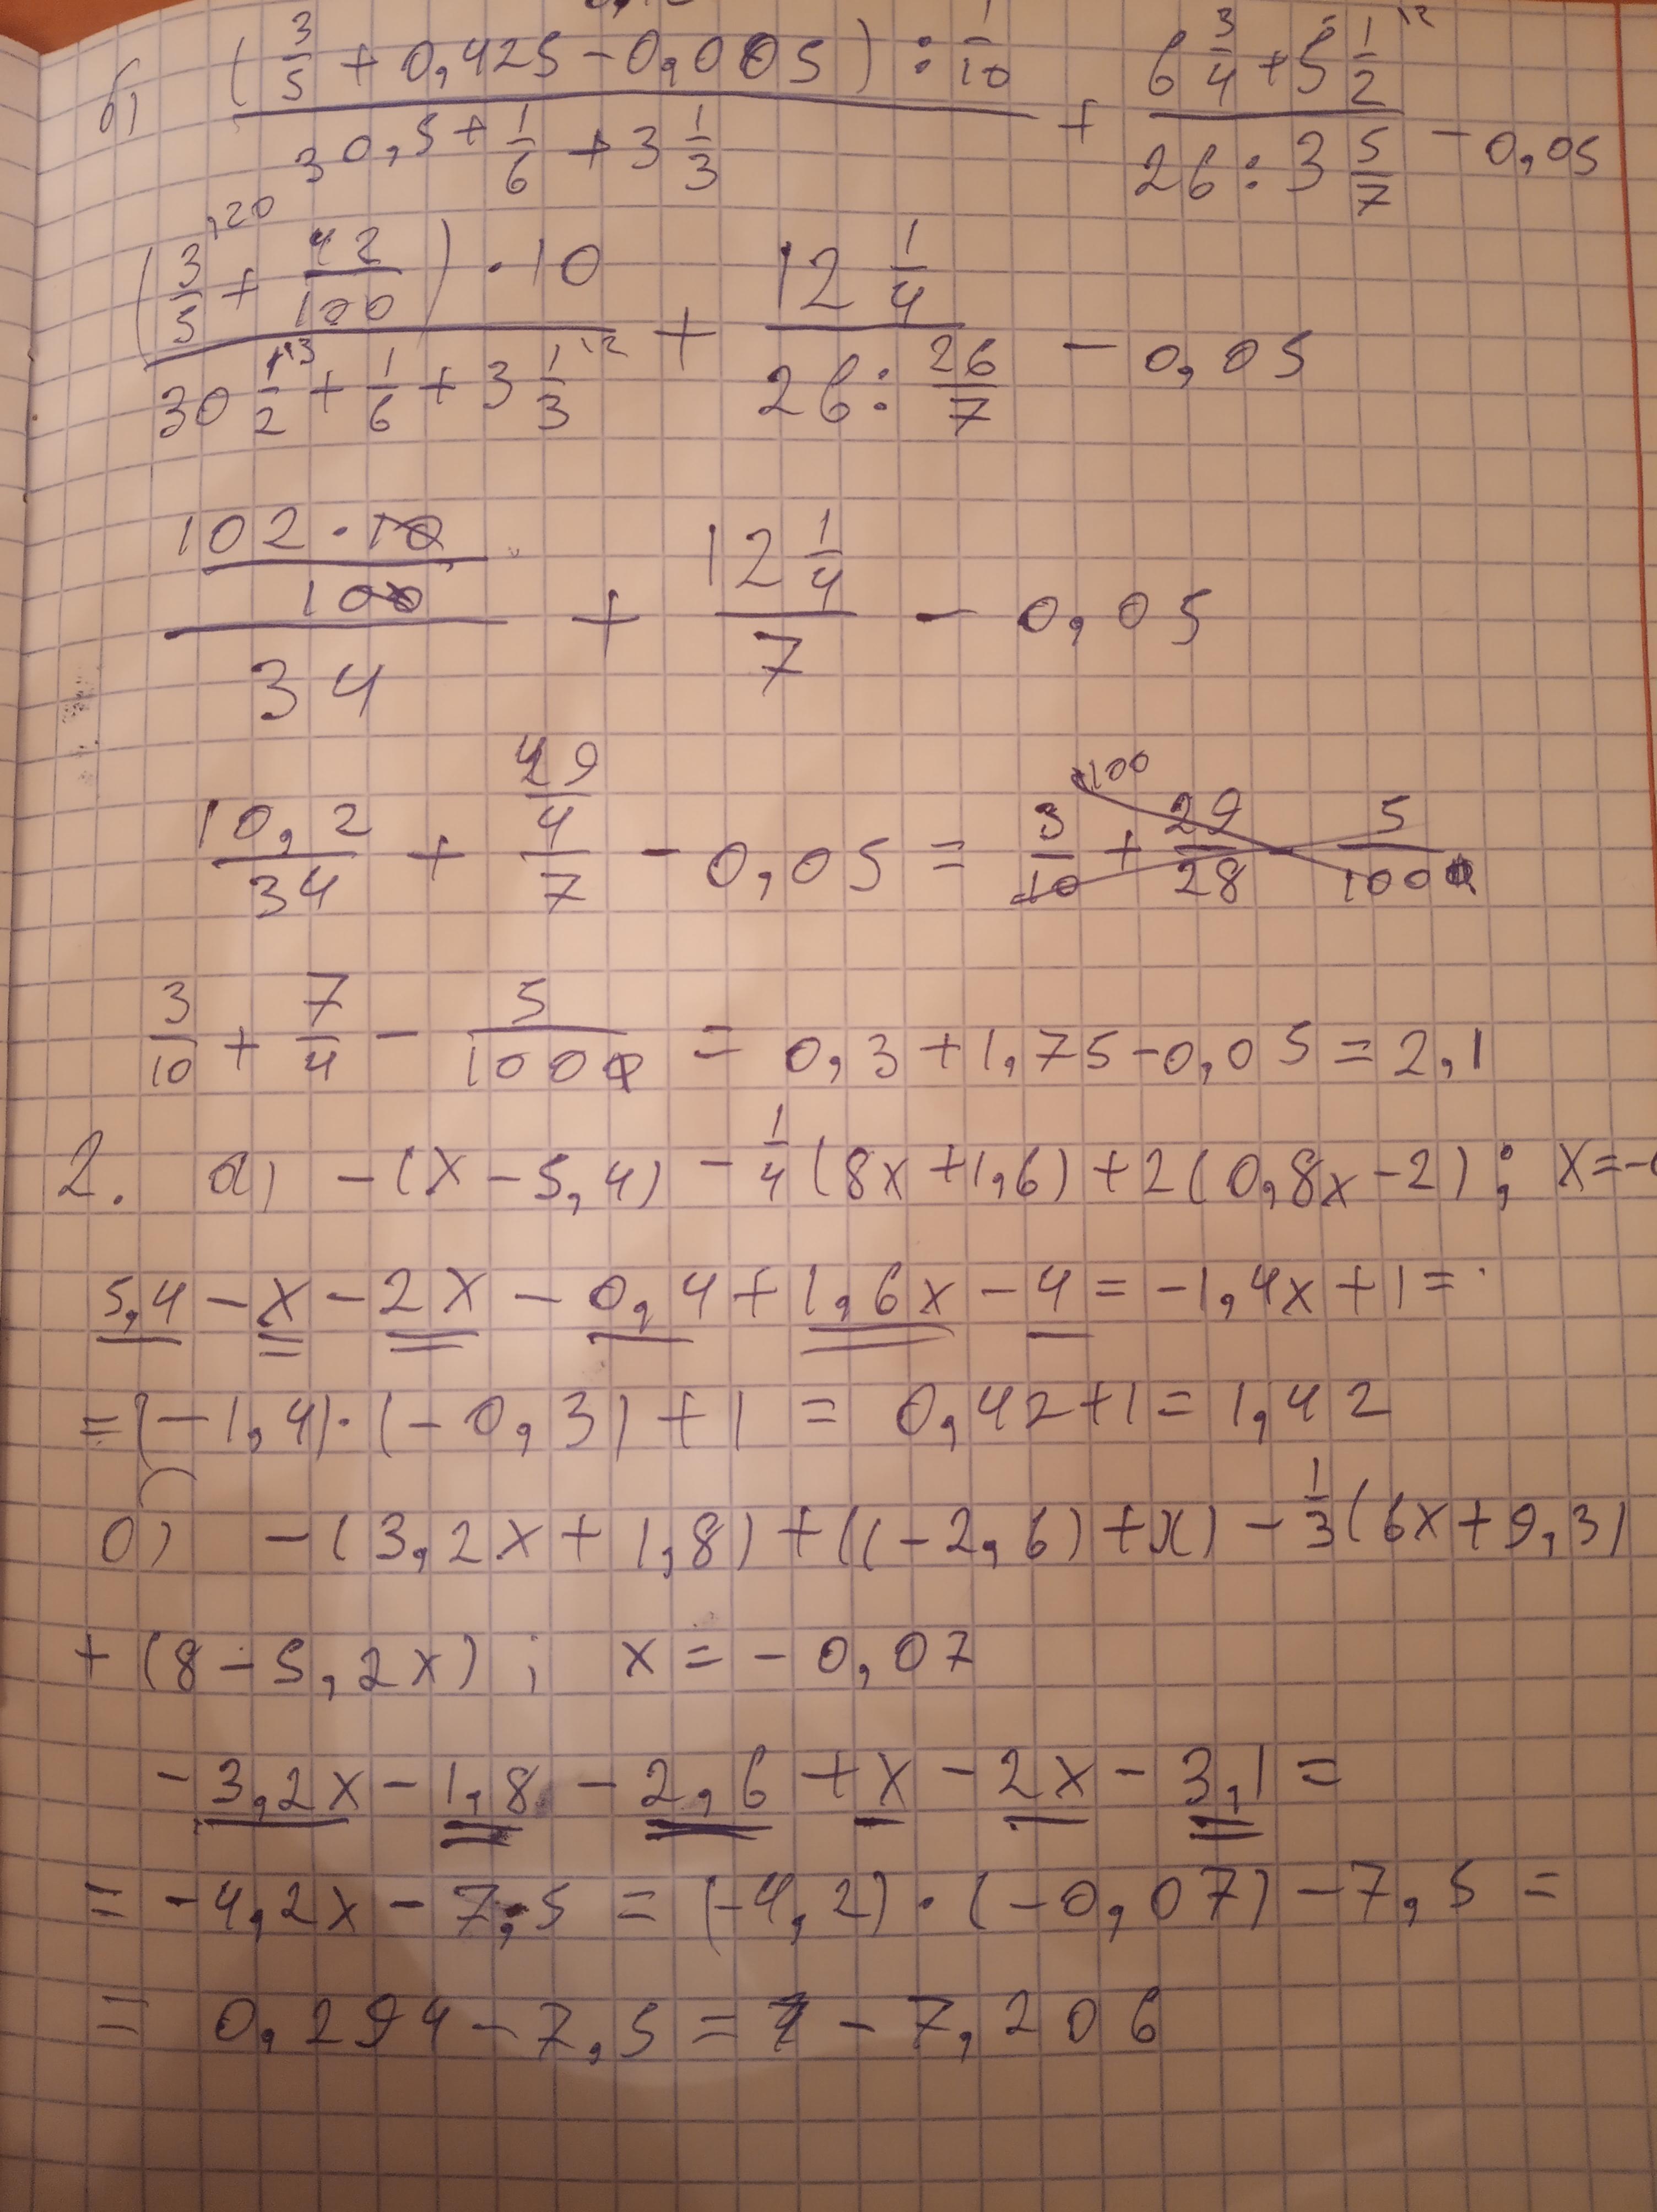 б) ((3/5 + 0,425 - 0,005) : 1/10) / (30,5 + 1/6 + 3 1/3) + (6 3/4 + 5 1/2 ^12) / (26 : 3 5/7) - 0,05
((3/5 ^120 + 42/100) · 10) / (30 1/2 ^13 + 1/6 + 3 1/3 ^12) + (12 1/4) / (26 : 26/7) - 0,05
(102 · 10 / 100) / 34 + (12 1/4) / 7 - 0,05
10,2/34 + (49/4)/7 - 0,05 = 3/10 + 29/28 - 5/100
3/10 + 7/4 - 5/100 = 0,3 + 1,75 - 0,05 = 2,1
2. а) -(x - 5,4) - 1/4 (8x + 1,6) + 2(0,8x - 2); x = -
5,4 - x - 2x - 0,4 + 1,6x - 4 = -1,4x + 1 =
= (-1,4) · (-0,3) + 1 = 0,42 + 1 = 1,42
б) -(3,2x + 1,8) + ((-2,6) + x) - 1/3 (6x + 9,3)
+ (8 - 5,2x); x = -0,07
-3,2x - 1,8 - 2,6 + x - 2x - 3,1 =
= -4,2x - 7,5 = (-4,2) · (-0,07) - 7,5 =
= 0,294 - 7,5 = - 7,206